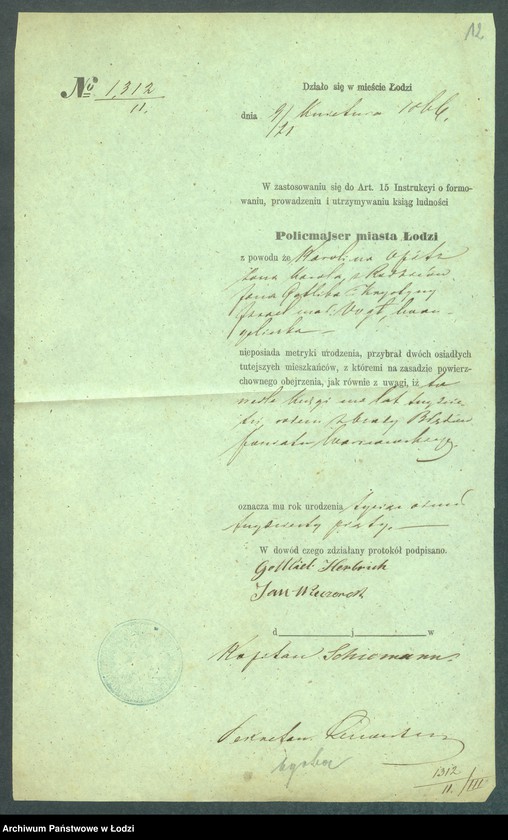 12
No 1312
II.
Działo się w mieście Łodzi
dnia 9/ Kwietnia 1866.
/21
W zastosowaniu się do Art. 15 Instrukcyi o formo-
waniu, prowadzeniu i utrzymywaniu ksiąg ludności
Policmajser miasta Łodzi
z powodu że Karolina Opitz
żona Karola, z Rodziców
Jana Gottliba i Krystyny
Vogt, Ewan-
gieliczka
nieposiada metryki urodzenia, przybrał dwóch osiadłych
tutejszych mieszkańców, z któremi na zasadzie powierz-
chownego obejrzenia, jak również z uwagi, iż
księgi ma lat
rodem z
powiatu Warszawskiego
oznacza mu rok urodzenia tysiąc ośmset
trzydziesty piąty.
W dowód czego zdziałany protokół podpisano.
Gottlieb
Jan
d j w
Kapitan Schiemann
Sekretarz
1312
II./III
Archiwum Państwowe w Łodzi